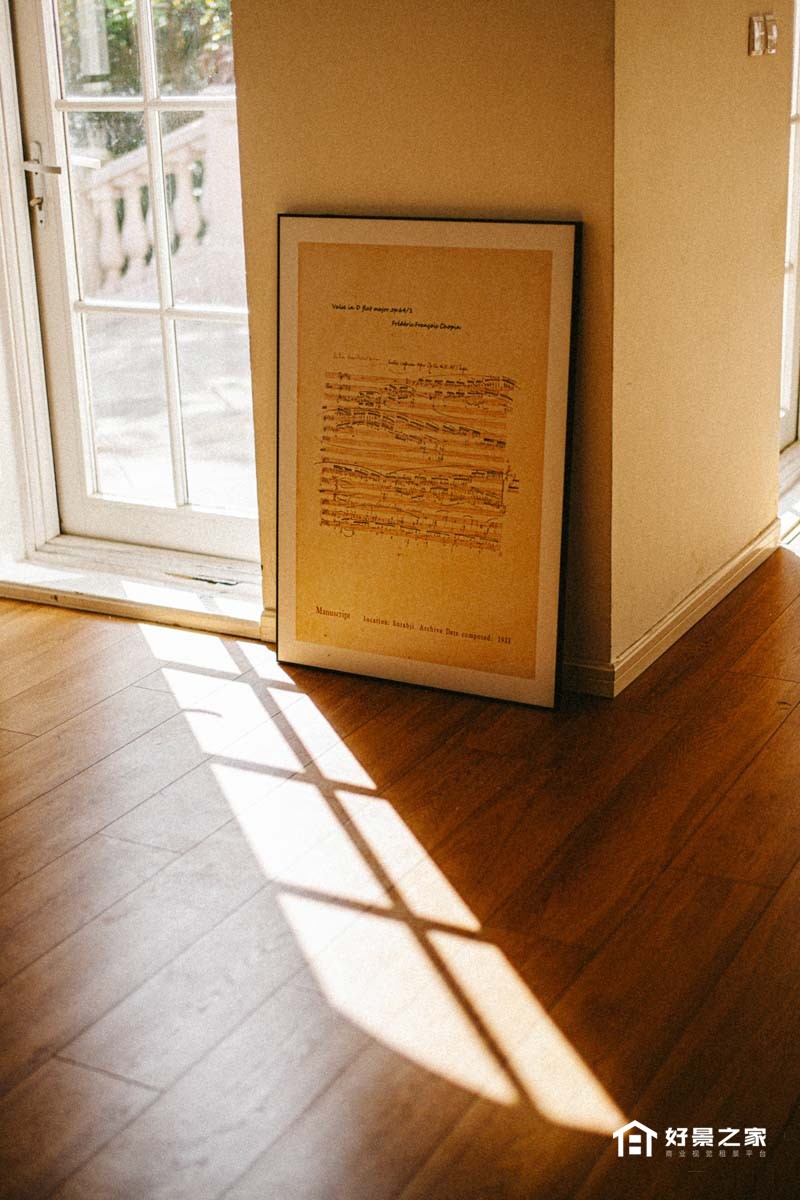 Valse in D flat major op.64/1
Frédéric François Chopin
Manuscript Location: Sorabji. Archive Date composed: 1933
好景之家
商业视觉租景平台